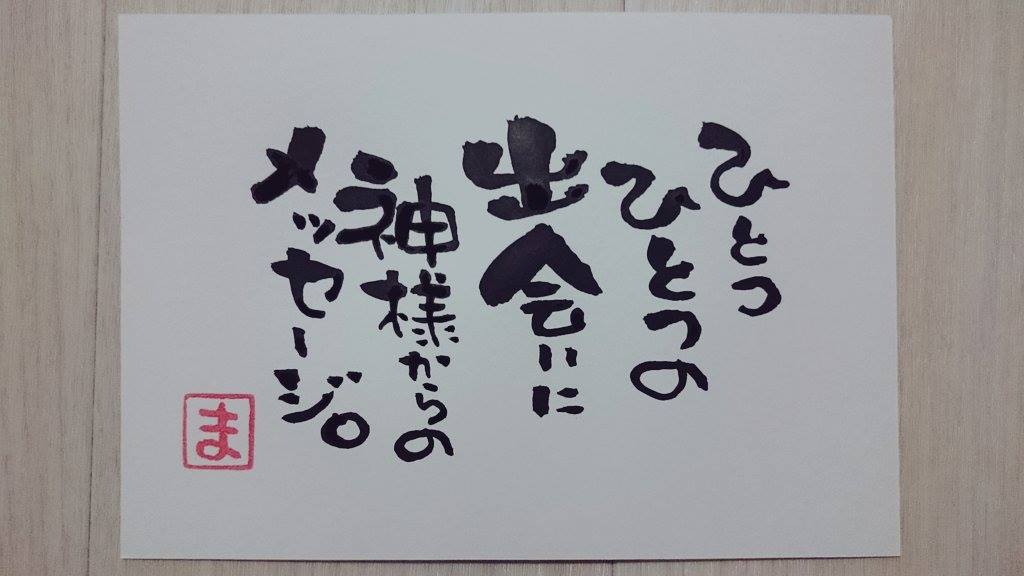 ひとつ
ひとつの
出会いに
神様からの
メッセージ。
ま